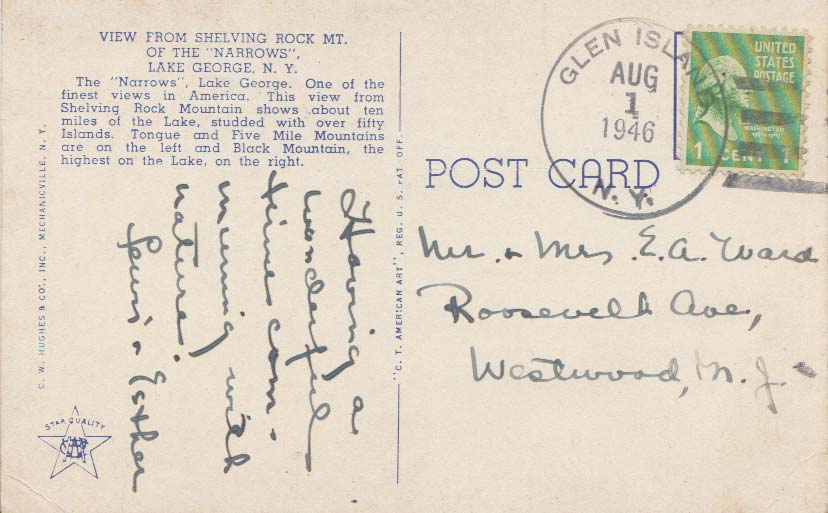 VIEW FROM SHELVING ROCK MT.
OF THE "NARROWS",
LAKE GEORGE, N. Y.
The "Narrows", Lake George. One of the
finest views in America. This view from
Shelving Rock Mountain shows about ten
miles of the Lake, studded with over fifty
Islands. Tongue and Five Mile Mountains
are on the left and Black Mountain, the
highest on the Lake, on the right.
C. W. HUGHES & CO., INC., MECHANICVILLE, N. Y.
STAR QUALITY
Having a
wonderful
time com-
muning with
nature!
Lewis & Esther
"C. T. AMERICAN ART", REG. U. S. PAT. OFF.
POST CARD
GLEN ISLAND
AUG
1
1946
N.Y.
UNITED
STATES
POSTAGE
WASHINGTON
1 CENT 1
Mr. & Mrs. E. A. Ward
Roosevelt Ave,
Westwood, N. J.